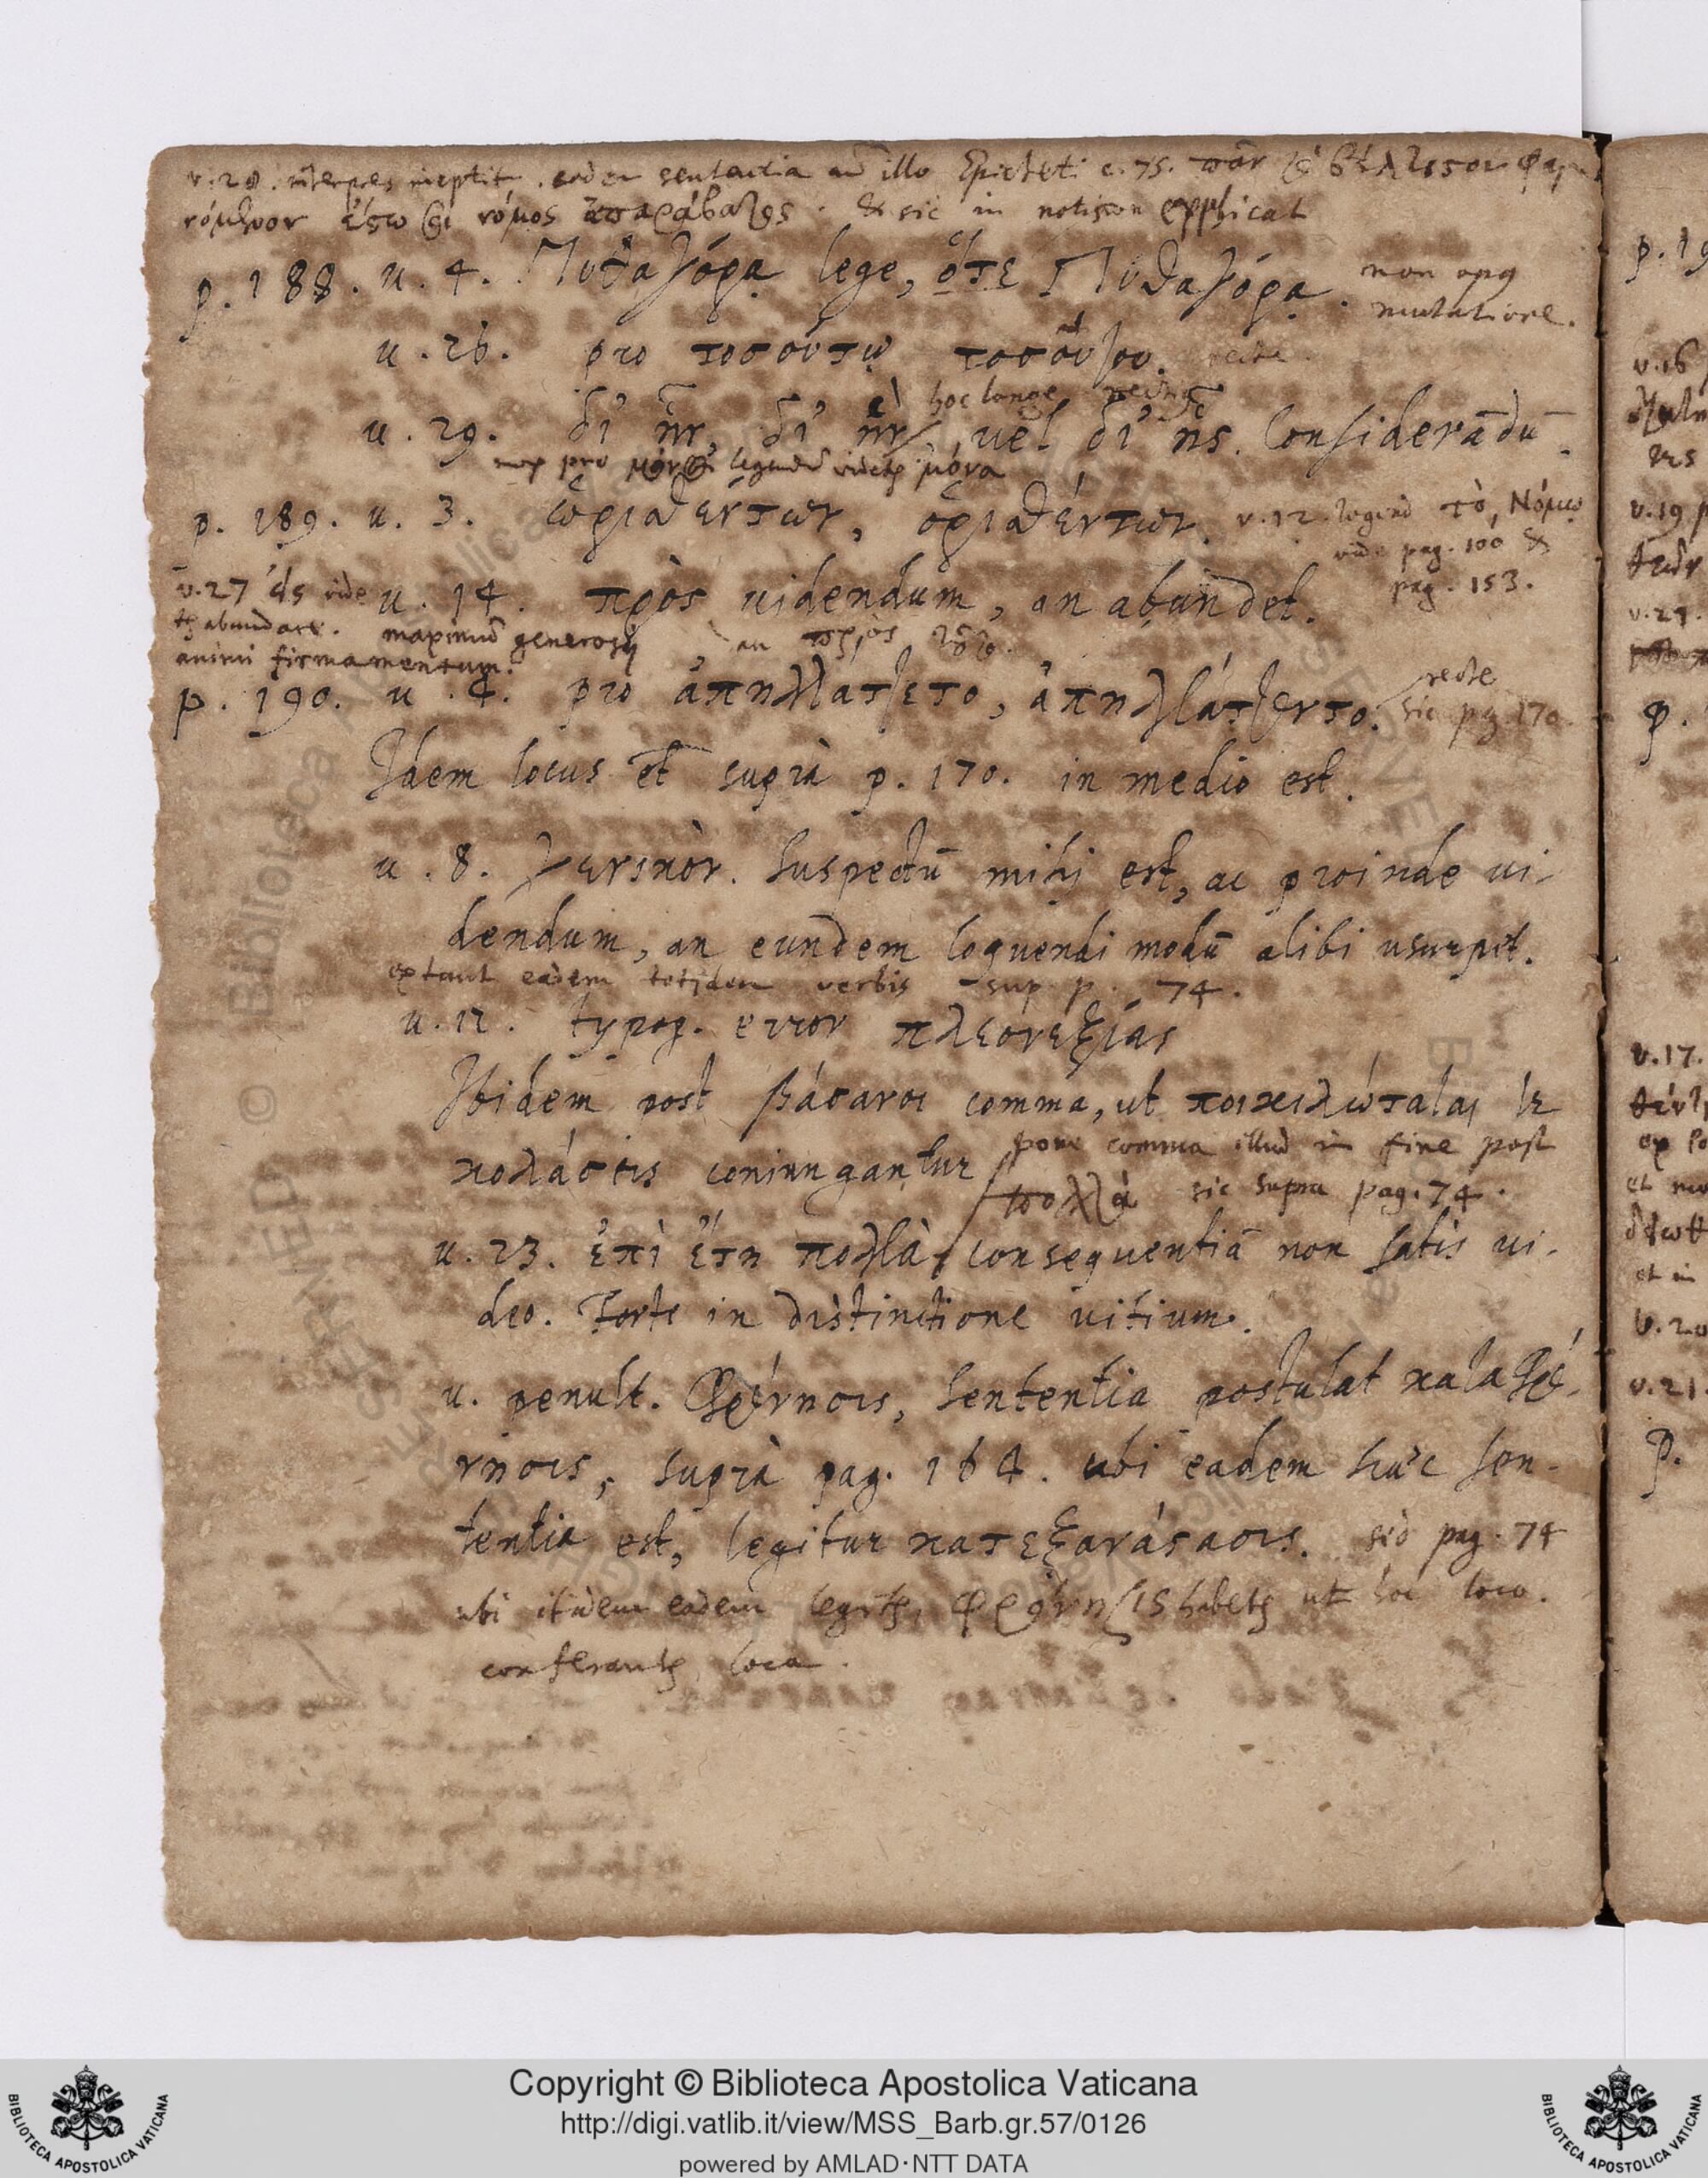 v. 28. interpres ineptit. eadem sententia cum illo Epicteti c. 75. πᾶν τὸ βέλτιστον φαι
νόμενον ἔστω σοι νόμος ἀπαράβατος. & sic in notis non explicat
p. 188. u. 4. Πυθαγόρᾳ lege, ὅτε Πυθαγόρᾳ. non opus
mutatione.
u. 26. pro τοσούτῳ τοσοῦτον. recte.
hoc longe rectius
u. 29. δι' ἣν, δι' ἣν, uel δι' ἧς. Considerādū.
mox pro legendū videtur μόνα
p. 189. u. 3. ὡρισθέντων, ὁρισθέντων. v. 12. legend τὸ, Νόμῳ
vide pag. 100 &
pag. 153.
v. 27 εἰς vide
tur abundare. maximū generosi
animi firmamentum.
u. 14. πρὸς uidendum, an abundet.
an πρὸς
p. 190. u. 4. pro ἀπηλλάττετο, ἀπηλλάττοντο. recte
sic pag. 170.
Idem locus et suprà p. 170. in medio est.
u. 8. γενικὸν. Suspectū mihi est, ac proinde ui-
dendum, an eundem loquendi modū alibi usurpet.
extant eadem totidem verbis sup. p. 74.
u. 12. typog. error πλεονεξίας
Ibidem post βάσανοι comma, ut ποικιλώταται &
κολάσεις coniungantur pone comma illud in fine post
πολλὰ sic supra pag. 74.
u. 23. ἐπὶ ἔτη πολλὰ consequentiā non satis ui-
deo. Forte in distinctione uitium.
u. penult. φρόνησις, Sententia postulat καταφρό-
νησις, suprà pag. 164. ubi eadem hæc sen-
tentia est, legitur κατεξανάστασις. sed pag. 74
ubi itidem eadem legitur, φρόνησις habetur ut hoc loco.
conferantur loca.
p. 19
v. 16
v. 19
v. 17.
et in
v. 20
v. 21.
p.
Copyright © Biblioteca Apostolica Vaticana
http://digi.vatlib.it/view/MSS_Barb.gr.57/0126
powered by AMLAD·NTT DATA
BIBLIOTECA APOSTOLICA VATICANA
BIBLIOTECA APOSTOLICA VATICANA